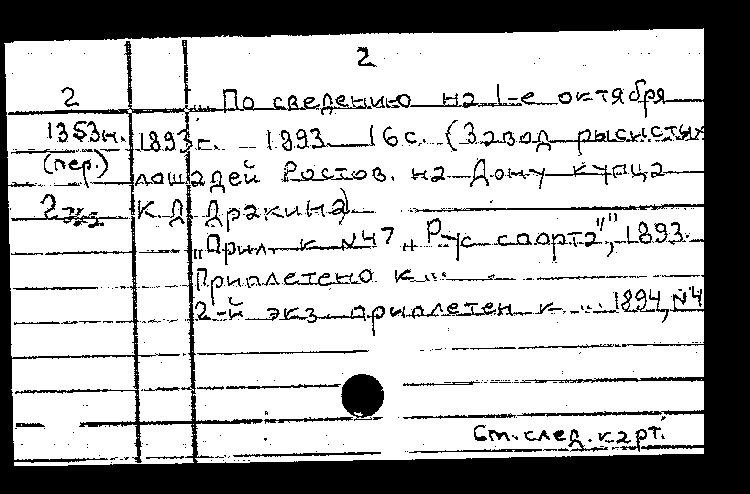 2
2
... По сведению на 1-е октября
1353н. 1893г. 1893. 16с. (Завод рысистых
(пер.) лошадей Ростов. на Дону купца
2 К Д Дракина)
„Прил. к №47 „Р-ус спорта"", 1893.
Приплетено к ...
2-й экз приплетен к ... 1894, №4
См. след. карт.